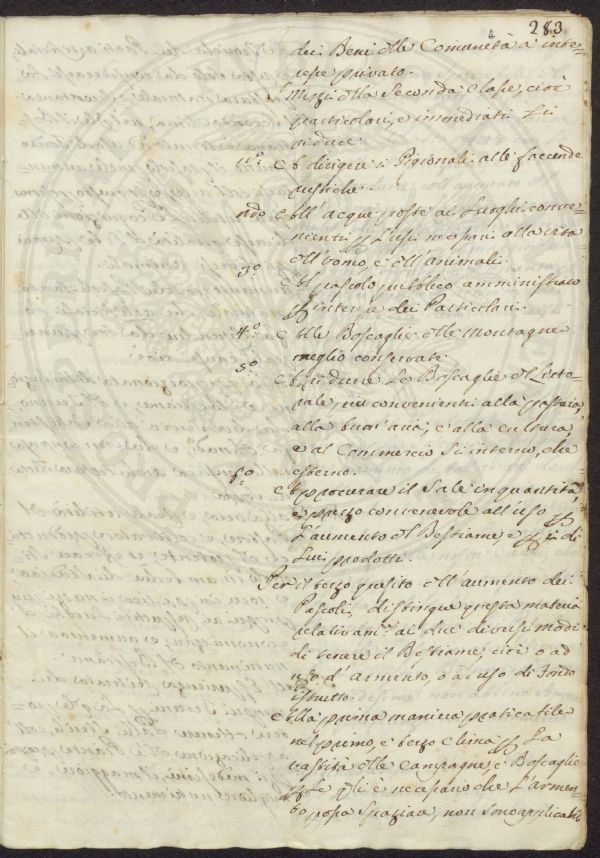 283
dei Beni delle Comunetà a inte=
resse privato.
I Mezzi della Seconda Classe, cioè
particolari, e immediati li
riduce
1mo. A dirigere i Pigionali alle faccende
rustiche.
ndo Nell'acque poste ai Luoghi conve=
nienti p gl'usi necessari alla vita
dell'uomo, e dell'animali.
3o. Nel pascolo pubblico amministrato
p interesse dei Particolari.
4o. Nelle Boscaglie delle Montagne
meglio conservate.
5o. A ridurre Le Boscaglie del Litto=
rale, più convenienti alla pastura,
alla buon'aria, e alla cultura,
e al Commercio Sì interno, che
esterno.
6o. A procurare il Sale in quantità,
e prezzo convenevole all'uso p
L'aumento del Bestiame e p i di
Lui prodotti.
Per il terzo quesito dell'aumento dei
Pascoli, distingue questa materia
relativamte. ai due diversi modi
di tenere il Bestiame, cioè o ad
uso d'armento, o ad uso di Fondo
istrutto.
Alla prima maniera praticabile
nel primo, e terzo Clima p La
vastità delle Campagne, e Boscaglie
p Le qli è necessario che L'armen=
to possa Spaziare, non sono applicabili